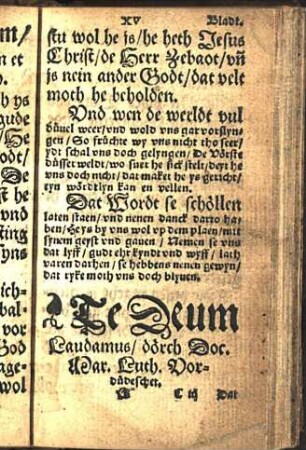 XV Bladt.
stu wol he is/ he heth Jesus
Christ/ de Herr Zebaot/ vñ
is nein ander Godt/ dat velt
moth he beholden.
Vnd wen de werldt vul
düuel weer/ vnd wold vns gar vorslyn-
gen/ So früchte wy vns nicht tho seer/
ydt schal vns doch gelyngen/ De Vörste
düsser weldt/ wo suer he sick stelt/ deyt he
vns doch nicht/ dat maket he ys gericht/
eyn wördtlyn kan en vellen.
Dat Wordt se schöllen
laten staen/ vnd nenen danck darto ha-
ben/ Hys by vns wol vp dem plaen/ mit
synem geyst vnd gauen/ Nemen se vns
dat lyff/ gudt ehr kyndt vnd wyff/ lath
varen darhen/ se hebbens nenen gewyn/
dat ryke moth vns doch blyuen.
Te Deum
Laudamus/ dörch Doc.
Mar. Luth. Vor-
düdeschet.
C iij Dat
m/
n et
h ys
gude
/ He
odt/
De
st he
vnd
ting
syns
ich-
bal-
vor
God
age-
wol